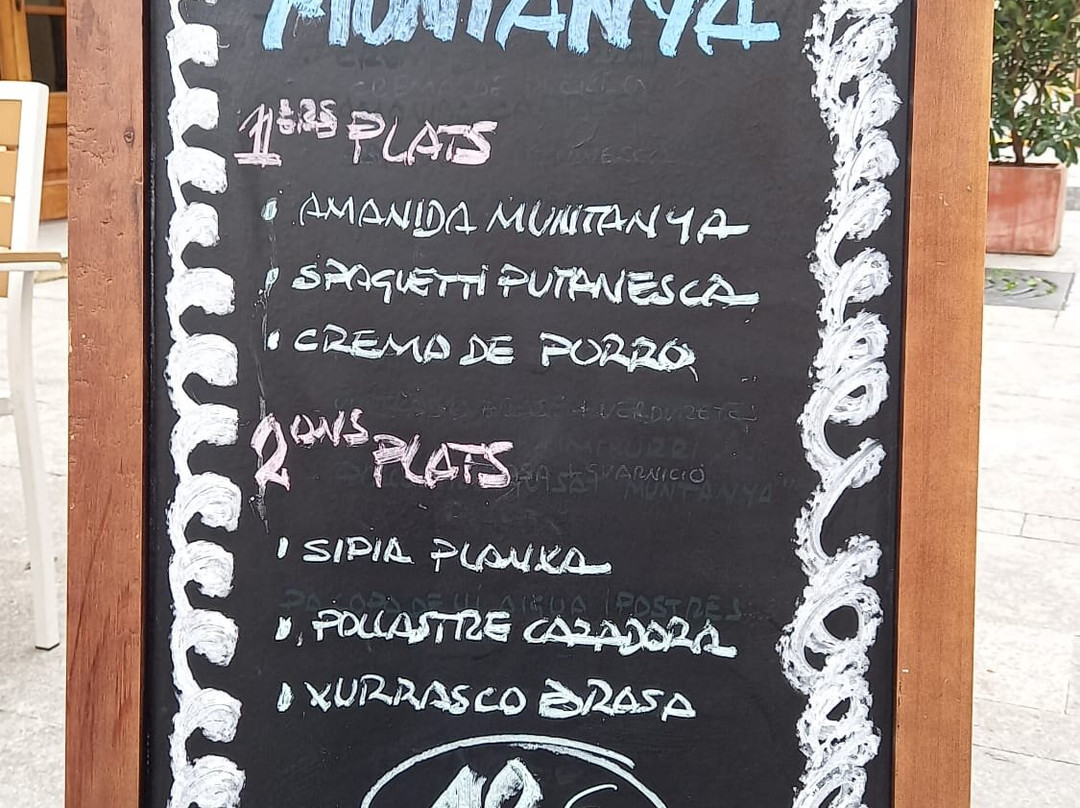 MUNTANYA
1ERS PLATS
AMANIDA MUNTANYA
SPAGUETTI PUTANESCA
CREMA DE PORRO
2ONS PLATS
SIPIA PLANXA
POLLASTRE CAZADORA
XURRASCO BRASA